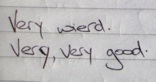 Very wierd.
Very, very good.